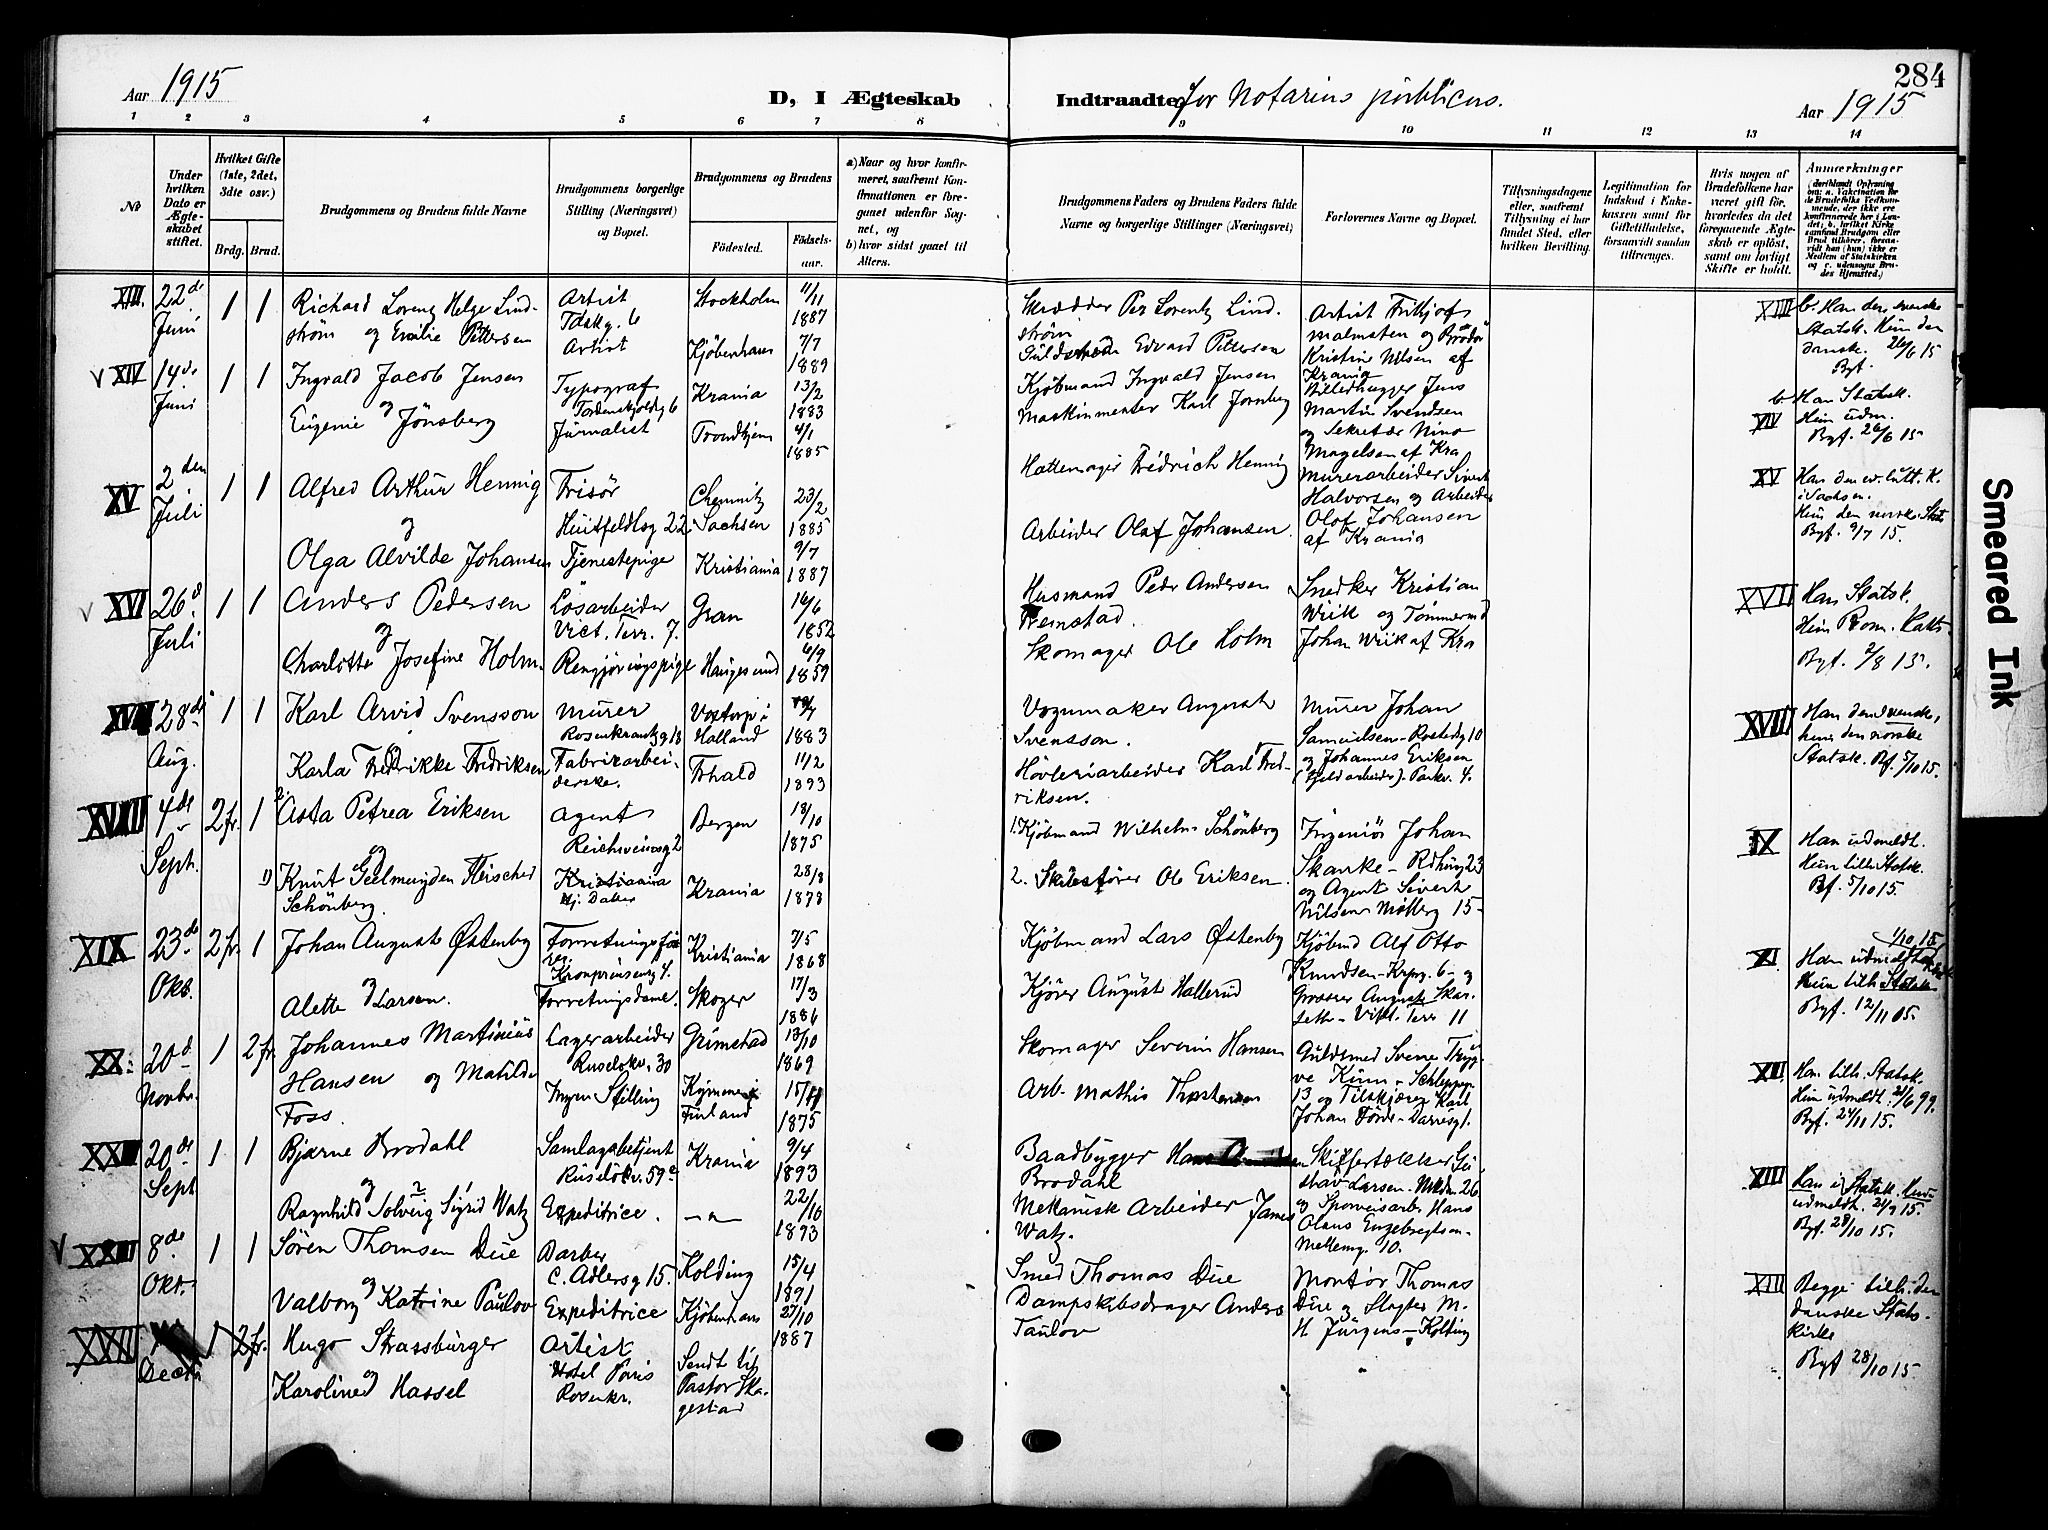 284
Aar 1915
D, I Ægteskab Indtraadte for Notarius publicus.
Aar 1915
1 2 3 4 5 6 7 8 9 10 11 12 13 14
No
Under hvilken Dato er Ægteskabet stiftet.
Hvilket Gifte (1ste, 2det, 3dte osv.)
Brdg. Brud.
Brudgommens og Brudens fulde Navne
Brudgommens borgerlige Stilling (Næringsvei) og Bopæl.
Brudgommens og Brudens
Fødested. Fødselsaar.
a) Naar og hvor konfirmeret, saafremt Konfirmationen er foregaaet udenfor Sognet, og
b) hvor sidst gaaet til Alters.
Brudgommens Faders og Brudens Faders fulde Navne og borgerlige Stillinger (Næringsvei)
Forlovernes Navne og Bopæl.
Tillysningsdagene eller, saafremt Tillysning ei har fundet Sted, efter hvilken Bevilling.
Legitimation for Indskud i Enkekassen samt for Giftetilladelse, forsaavidt saadan tiltrænges.
Hvis nogen af Brudefolkene har været gift før, hvorledes da det foregaaende Ægteskab er opløst, samt om lovligt Skifte er holdt.
Anmærkninger
XIII. 22de Juni 1 1
Richard Lorenz Helge Lindström og Emilie Pettersen
Artist
Tdskg. 6
Artist
Stockholm 11/11 1887
Kjöbenhavn 7/7 1889
Skrædder Per Lorentz Lindström
Edvard Pettersen
Artist Frithjof Malmsten og
Kristine Nilsen af Krania
XIII b. Han den svenske Statsk. Hun den danske. 26/6 15
Byf.
v XIV 14de Juni 1 1
Ingvald Jacob Jensen
og
Eugenie Jönsberg
Typograf
Tordenskjoldsg 6
Journalist
Krania 13/2 1883
Trondhjem 4/1 1885
Kjöbmand Ingvald Jensen
Maskinmester Karl
Billedhugger Jens Martin Svendsen
og Sekretær Nino Magelsen af Kra
XIV b Han Statsk.
Hun udm.
Byf. 26/6 15
XV 2den Juli 1 1
Alfred Arthur Hennig
og
Olga Alvilde Johansen
Frisör
Huitfeldtsg 22
Tjenestepige
Chemnitz Sachsen 23/2 1885
Kristiania 9/7 1887
Hattemager Fridrich Hennig
Arbeider Olaf Johansen.
Murerarbeider Sivert Halvorsen og Arbeider
Olaf Johansen af Krania
XV Han den ev. luth. K. i Sachsen.
Hun den norske Stats
Byf. 9/7 15.
v XVI 26d. Juli 1 1
Anders Pedersen
og
Charlotte Josefine Holm.
Lösarbeider
Vict. Terr. 7.
Rengjöringspige
Gran 16/6 1852
Haugesund 6/9 1859
Husmand Peder Andersen
Skomager Ole Holm
Snedker Kristian Wiik og Tömmermd
Johan Wiik af Kra
XVII Han Statsk.
Hun Rom. Kath.
Byf. 2/8 15.
XVII 28de Aug. 1 1
Karl Arvid Svensson
og
Karla Fredrikke Fredriksen
Murer
Rosenkrantzg 18
Fabrikarbeiderske.
Vostorp i Halland 1883
Frhald 11/2 1893
Vognmaker August Svensson.
Hövleriarbeider Karl Fredriksen.
Murer Johan Samuelsen - Rostedsg 10
og Johannes Eriksen
Parkv. 4.
XVIII Han den svenske, hun den norske
Statsk. Bf. 5/10 15.
XVIII 4de Sept. 2 fr. 1
2. Asta Petrea Eriksen
og
1) Knut Geelmuyden Fleischer Schönberg.
Agent
2
Kristiania
Bergen 18/10 1875
Krania 28/8 1878
1. Kjöbmand Wilhelm Schönberg
2. Ole Eriksen.
Ingeniör Johan Skanke - Rdhusg 23
og Agent Sivert Nilsen Möllerg 15
IX Han udmeldt.
Hun tilh. Statsk.
Bf. 5/10 15.
XIX 23de Okt. 2 fr. 1
Johan August Østenby
og
Alette Larsen.
Forretningsförer.
Kronprinsensg 4.
Forretningsdame.
Kristiania 7/5 1868
Skoger 17/3 1886
Kjöbmand Lars Østenby
Kjörer August Hallerud
Kjöbmd Alf Otto Knudsen - Krprg. 6 - og
Grosserer August
Vikt. Terr 11
XI Han udmeldt 1/10 15
Hun tilh. Statsk
Byf. 12/11 05.
XX. 20d Novbr. 1 2 fr.
Johannes Martinius Hansen og Matilde Foss.
Lagerarbeider
Ruselökv. 30
Ingen Stilling
Grimstad 13/10 1869
Kymmene i Finland 15/11 1875
Skomager Severin Hansen
Arb. Mathis Thorstensen
Guldsmed Sverre Trygve
13 og Tilskjærer Karl Johan
XIII Han tilh. Statsk.
Hun udmeldt 99.
Byf. 24/11 15.
XXII 20de Sept 1 1
Bjarne Brodahl
og
Ragnhild Solveig Sigrid Watz
Samlagsbetjent
Ruselökv. 59
Expeditrice.
Krania 9/4 1893
— " — 22/10 1893
Baadbygger Hans
Brodahl
Mekanisk Arbeider James Watz.
Skiffertækker Gustav Larsen
26
og Sporveisarb. Hans Olaus Engebregtsen -
10.
XIII Han i Statsk. Hun
udmeldt. 21/9 15.
Byf. 28/10 15.
v XXIII 8de Okt. 1 1
Sören Thomsen Due
og
Valborg Katrine Paulov
Barber
C. Adlersg 15.
Expeditrice
Kolding 15/4 1891
Kjöbenhavn 27/10 1887
Smed Thomas Due
Dampskibsdrager Anders Taulov
Montör Thomas Due og Slagter M.
H Jürgens - Kolding
XIII Begge tilh. den danske Statskirke
Byf 28/10 15
XXII Decbr 1 2 fr.
Hugo Strassburger
og
Karoline Hassel
Artist
Hotel Paris
Rosenkr.
Sendt til Pastor Skagestad
Smeared Ink